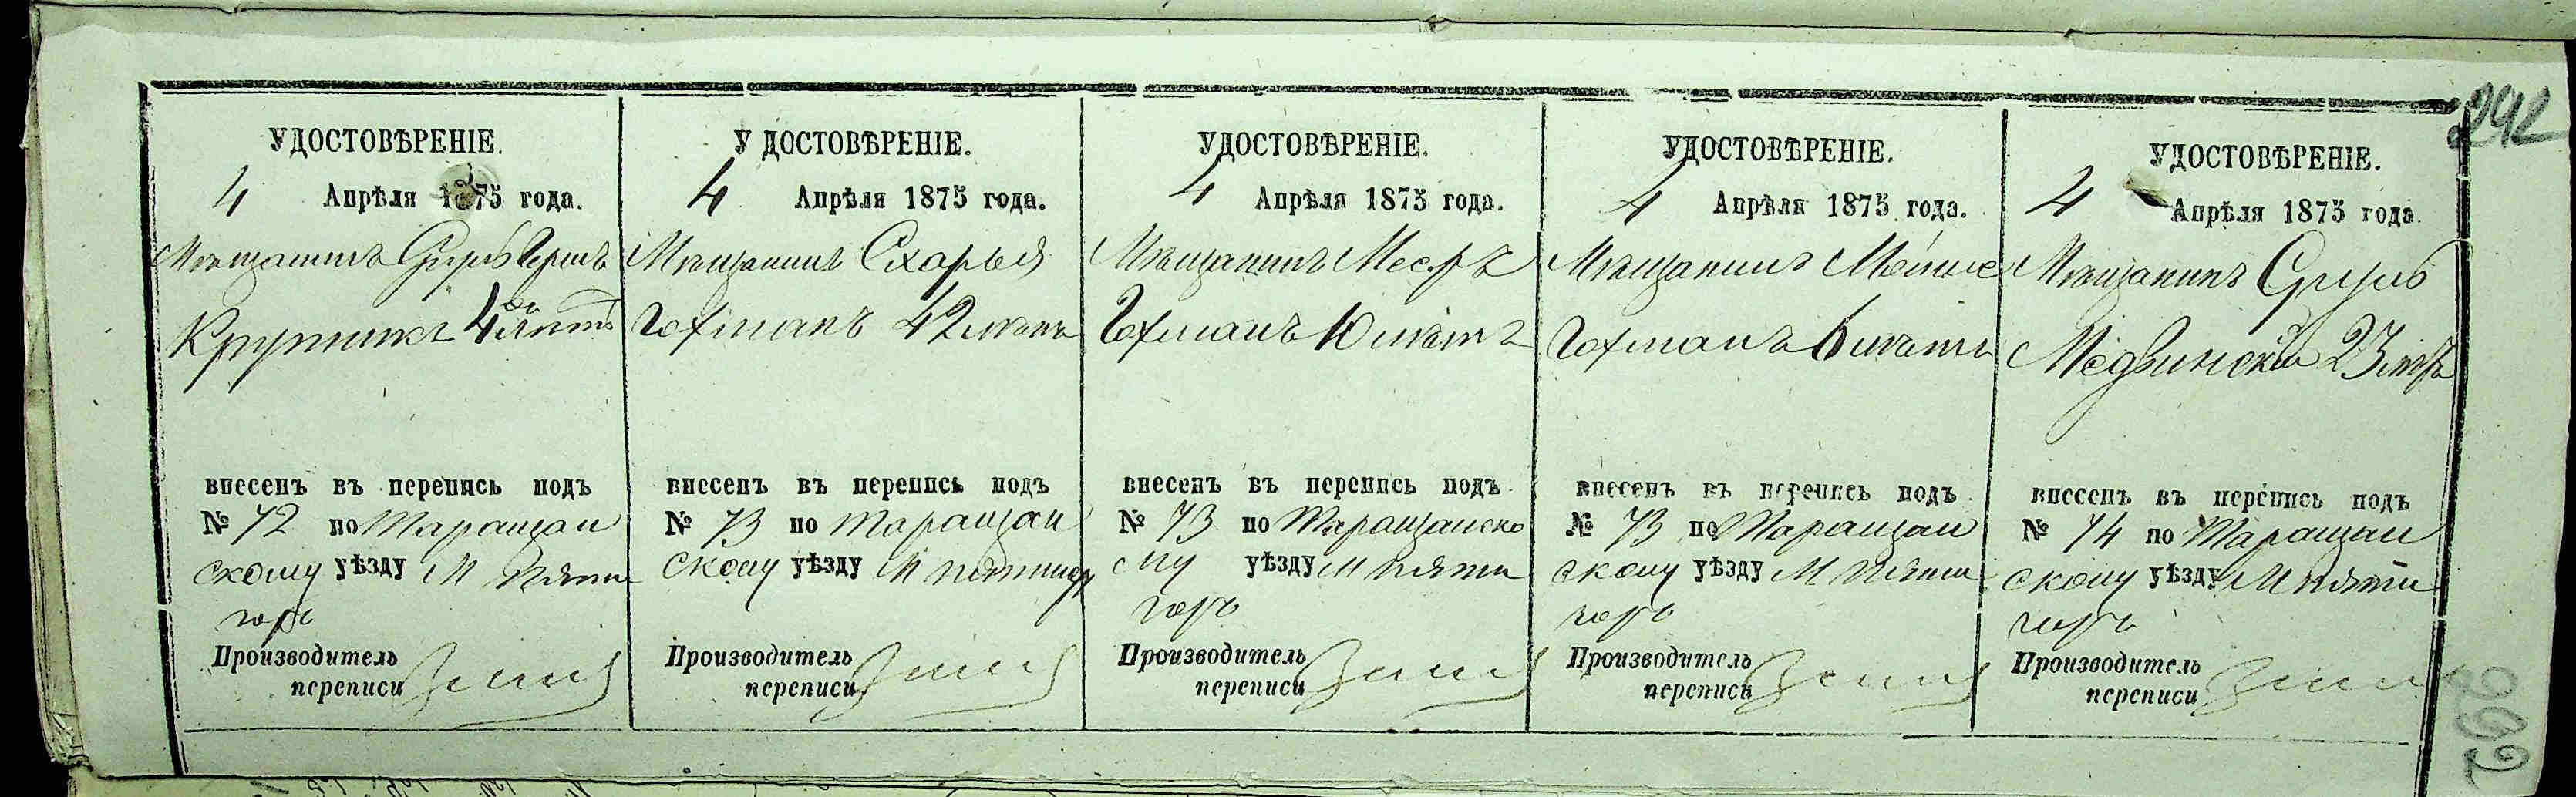 242
УДОСТОВѢРЕНІЕ.
4 Апрѣля 1875 года.
Мѣщанинъ Сруль Гершъ
лѣтъ
внесенъ въ перепись подъ
№ 72 по Таращан
скому уѣзду М Пяти
горъ
Производитель
переписи
У ДОСТОВѢРЕНІЕ.
4 Апрѣля 1875 года.
Мѣщанинъ Схарья
Гохманъ 42 лѣтъ
внесенъ въ перепись подъ
№ 73 по Таращан
скому уѣзду М Пятигор
Производитель
переписи
УДОСТОВѢРЕНІЕ.
4 Апрѣля 1875 года.
Мѣщанинъ
Гохманъ 10 лѣтъ
внесенъ въ перепись подъ
№ 73 по Таращанско
му уѣзду М Пяти
горъ
Производитель
переписи
УДОСТОВѢРЕНІЕ.
4 Апрѣля 1875 года.
Мѣщанинъ Мойше
Гохманъ 6 лѣтъ
внесенъ въ перепись подъ
№ 73 по Таращан
скому уѣзду М Пяти
горъ
Производитель
переписи
УДОСТОВѢРЕНІЕ.
4 Апрѣля 1875 года.
Мѣщанинъ Сруль
Медвинскій 23 лѣтъ
внесенъ въ перепись подъ
№ 74 по Таращан
скому уѣзду М Пяти
горъ
Производитель
переписи
292